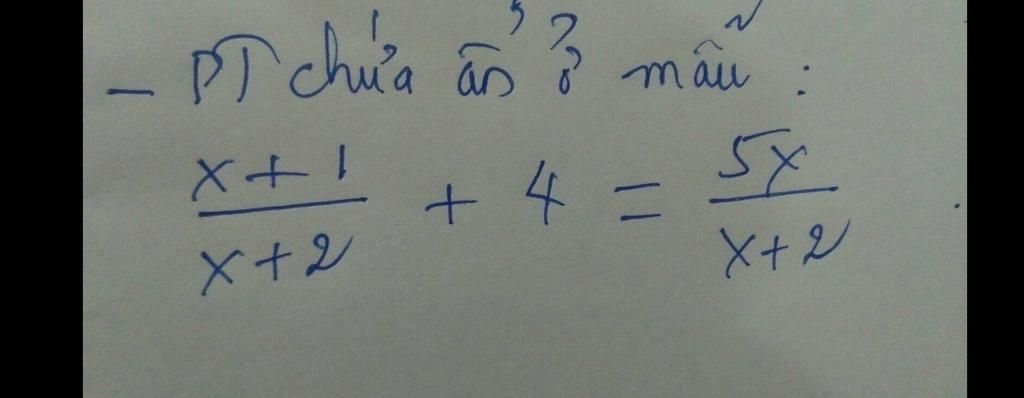 - PT chứa ẩn ở mẫu :
x + 1 / x + 2 + 4 = 5x / x + 2 .